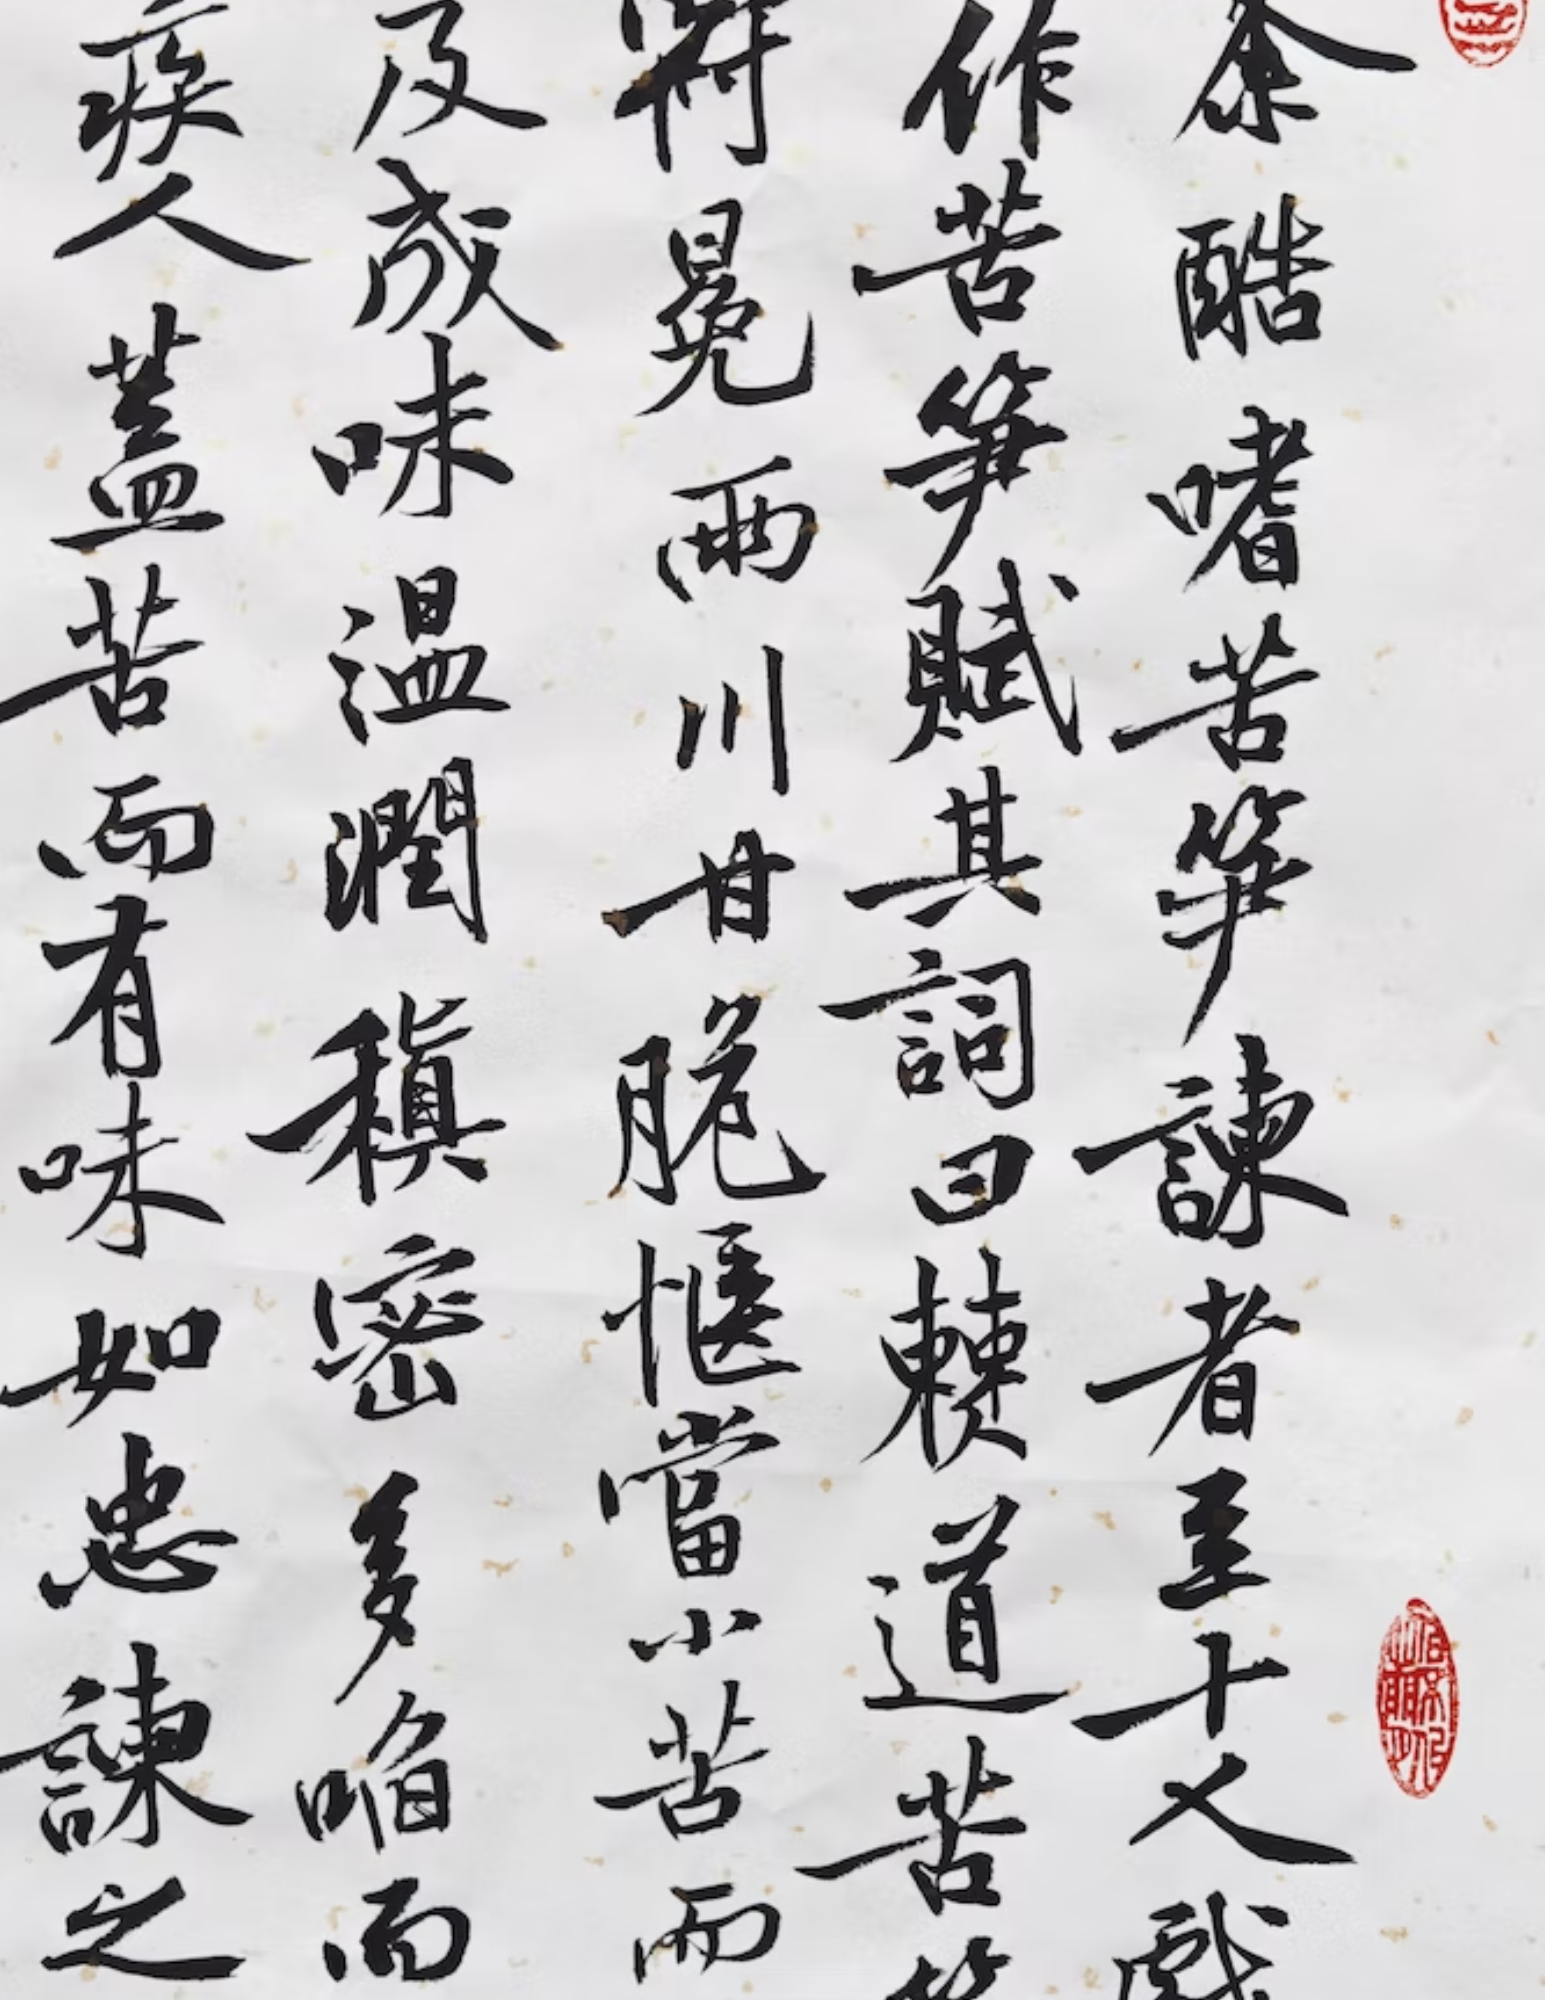 余酷嗜苦笋諫者至十人戲
作苦笋賦其詞曰僰道苦笋
冠冕兩川甘脆愜當小苦而
反成味溫潤稹密多啗而
疾人蓋苦而有味如忠諫之